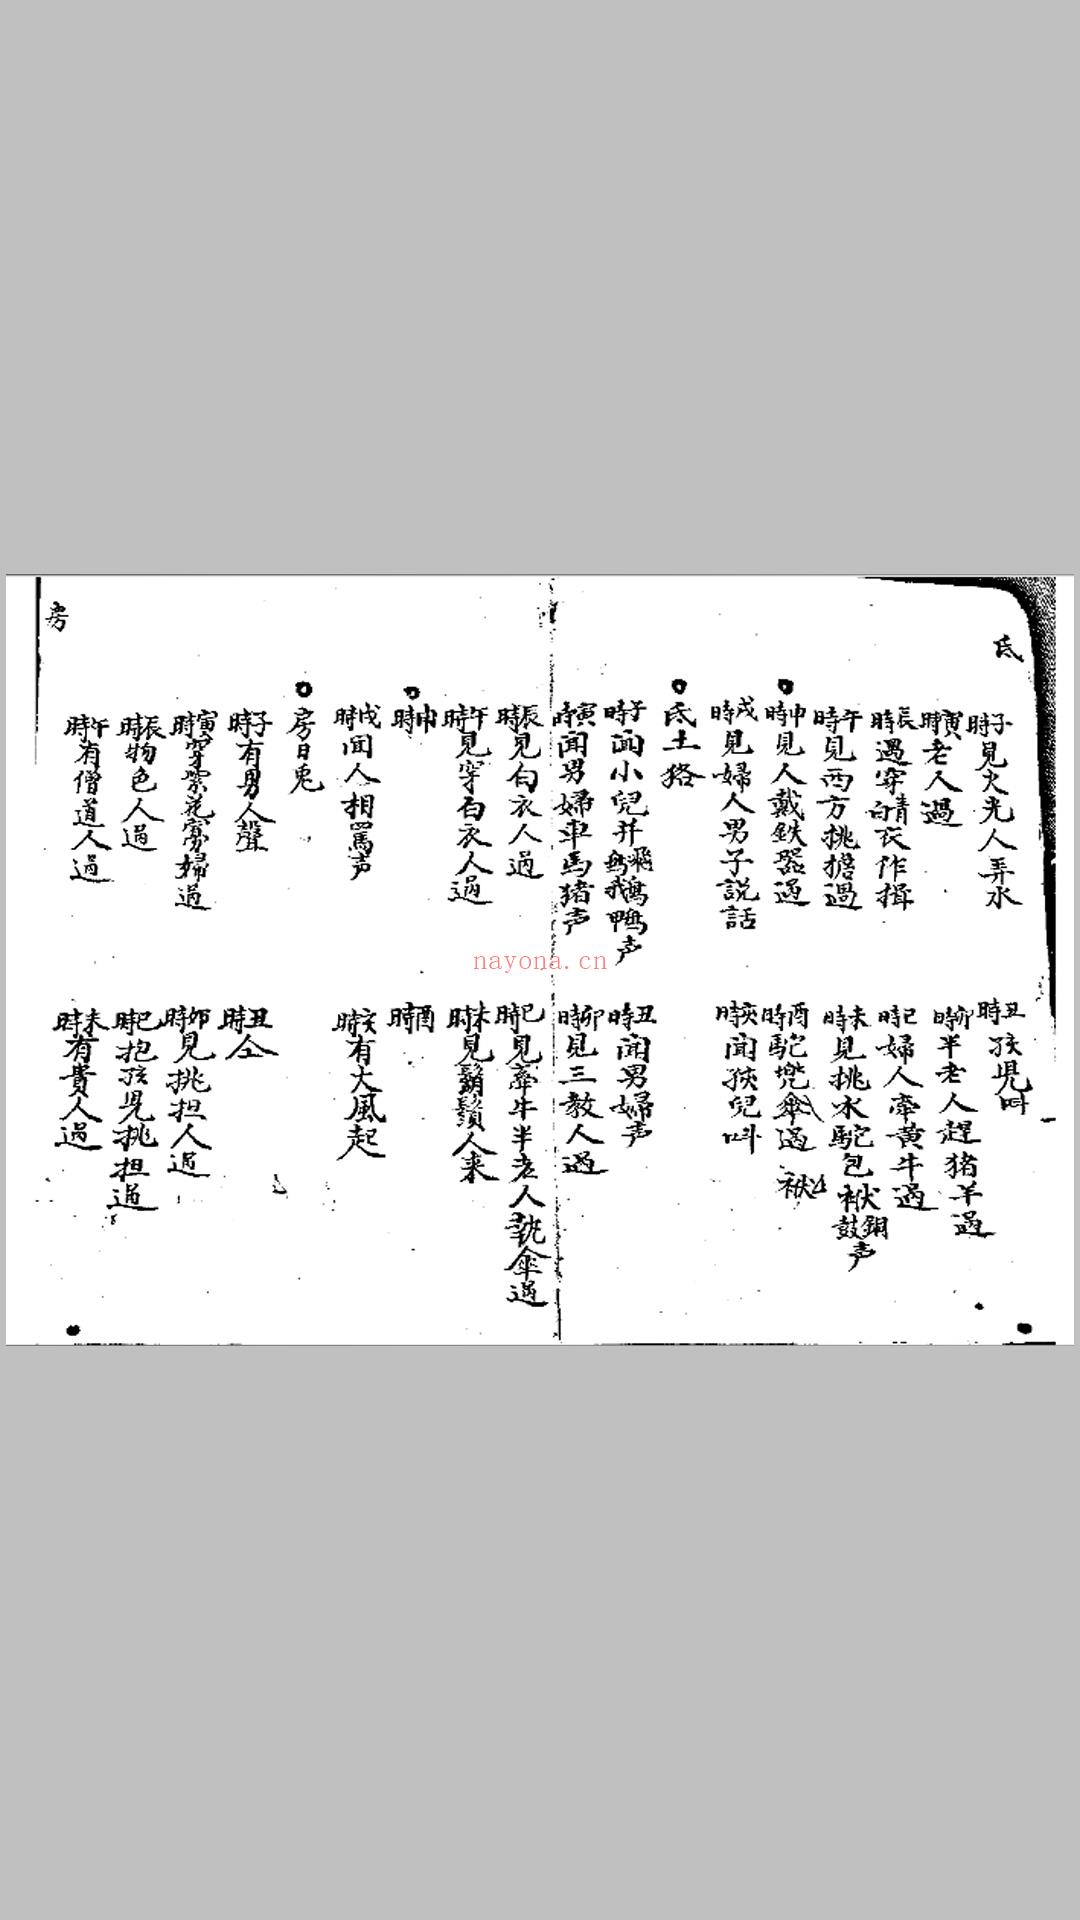 氐
子時見火光人弄水
丑時孩児叫
寅時老人過
卯時半老人趕猪羊過
辰時遇穿青白衣作揖
巳時婦人牽黄牛過
午時見西方挑擔過
未時見挑水駝包袱銅鼓声
申時見人戴鉄器過
酉時駝兠傘過袱
戌時見婦人男子説話
亥時聞孩兒叫
氐土狢
子時聞小兒并飛鳥鵝鴨声
丑時聞男婦声
寅時聞男婦車馬猪声
卯時見三教人過
辰時見白衣人過
巳時見牽牛半老人執傘過
午時見穿白衣人過
未時見鬍鬚人来
申時
酉時
戌時聞人相罵声
亥時有大風起
房日兎
子時有男人聲
丑時仝
寅時穿紫花寡婦過
卯時見挑担人過
辰時物色人過
巳時抱孩児挑担過
午時有僧道人過
未時有貴人過
房
nayona.cn